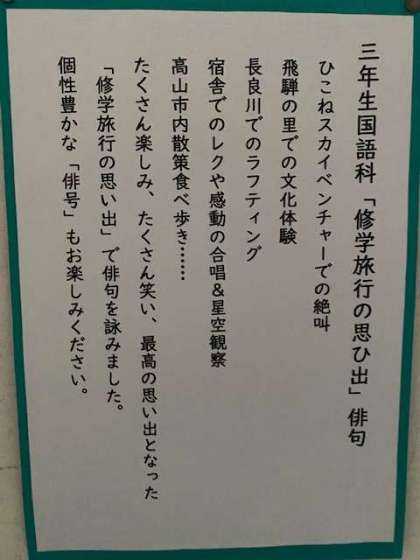 三年生国語科「修学旅行の思ひ出」俳句
ひこねスカイベンチャーでの絶叫
飛騨の里での文化体験
長良川でのラフティング
宿舎でのレクや感動の合唱&星空観察
高山市内散策食べ歩き……
たくさん楽しみ、たくさん笑い、最高の思い出となった
「修学旅行の思い出」で俳句を詠みました。
個性豊かな「俳号」もお楽しみください。